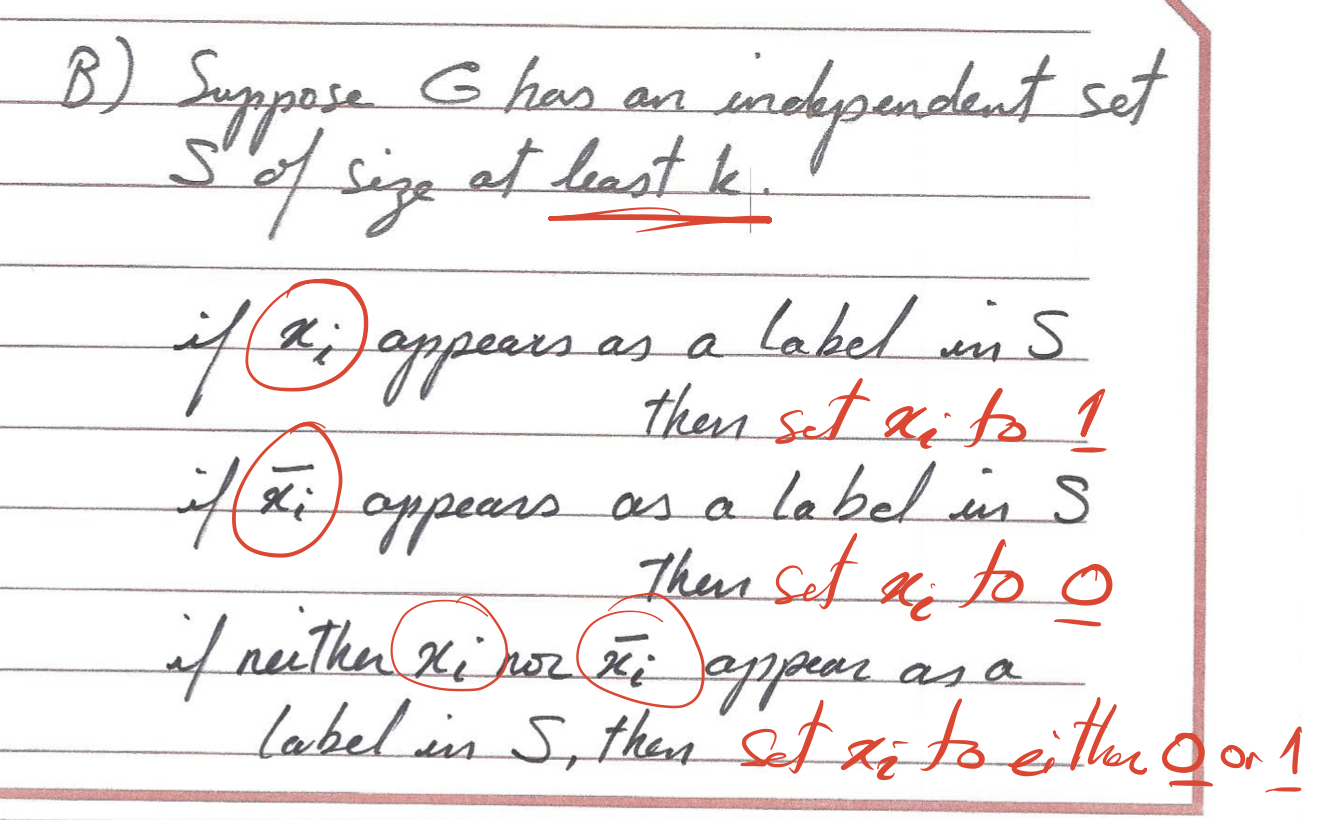 B) Suppose G has an independent set
S of size at least k.
if xᵢ appears as a label in S
then set xᵢ to 1
if x̄ᵢ appears as a label in S
then set xᵢ to 0
if neither xᵢ nor x̄ᵢ appear as a
label in S, then set xᵢ to either 0 or 1